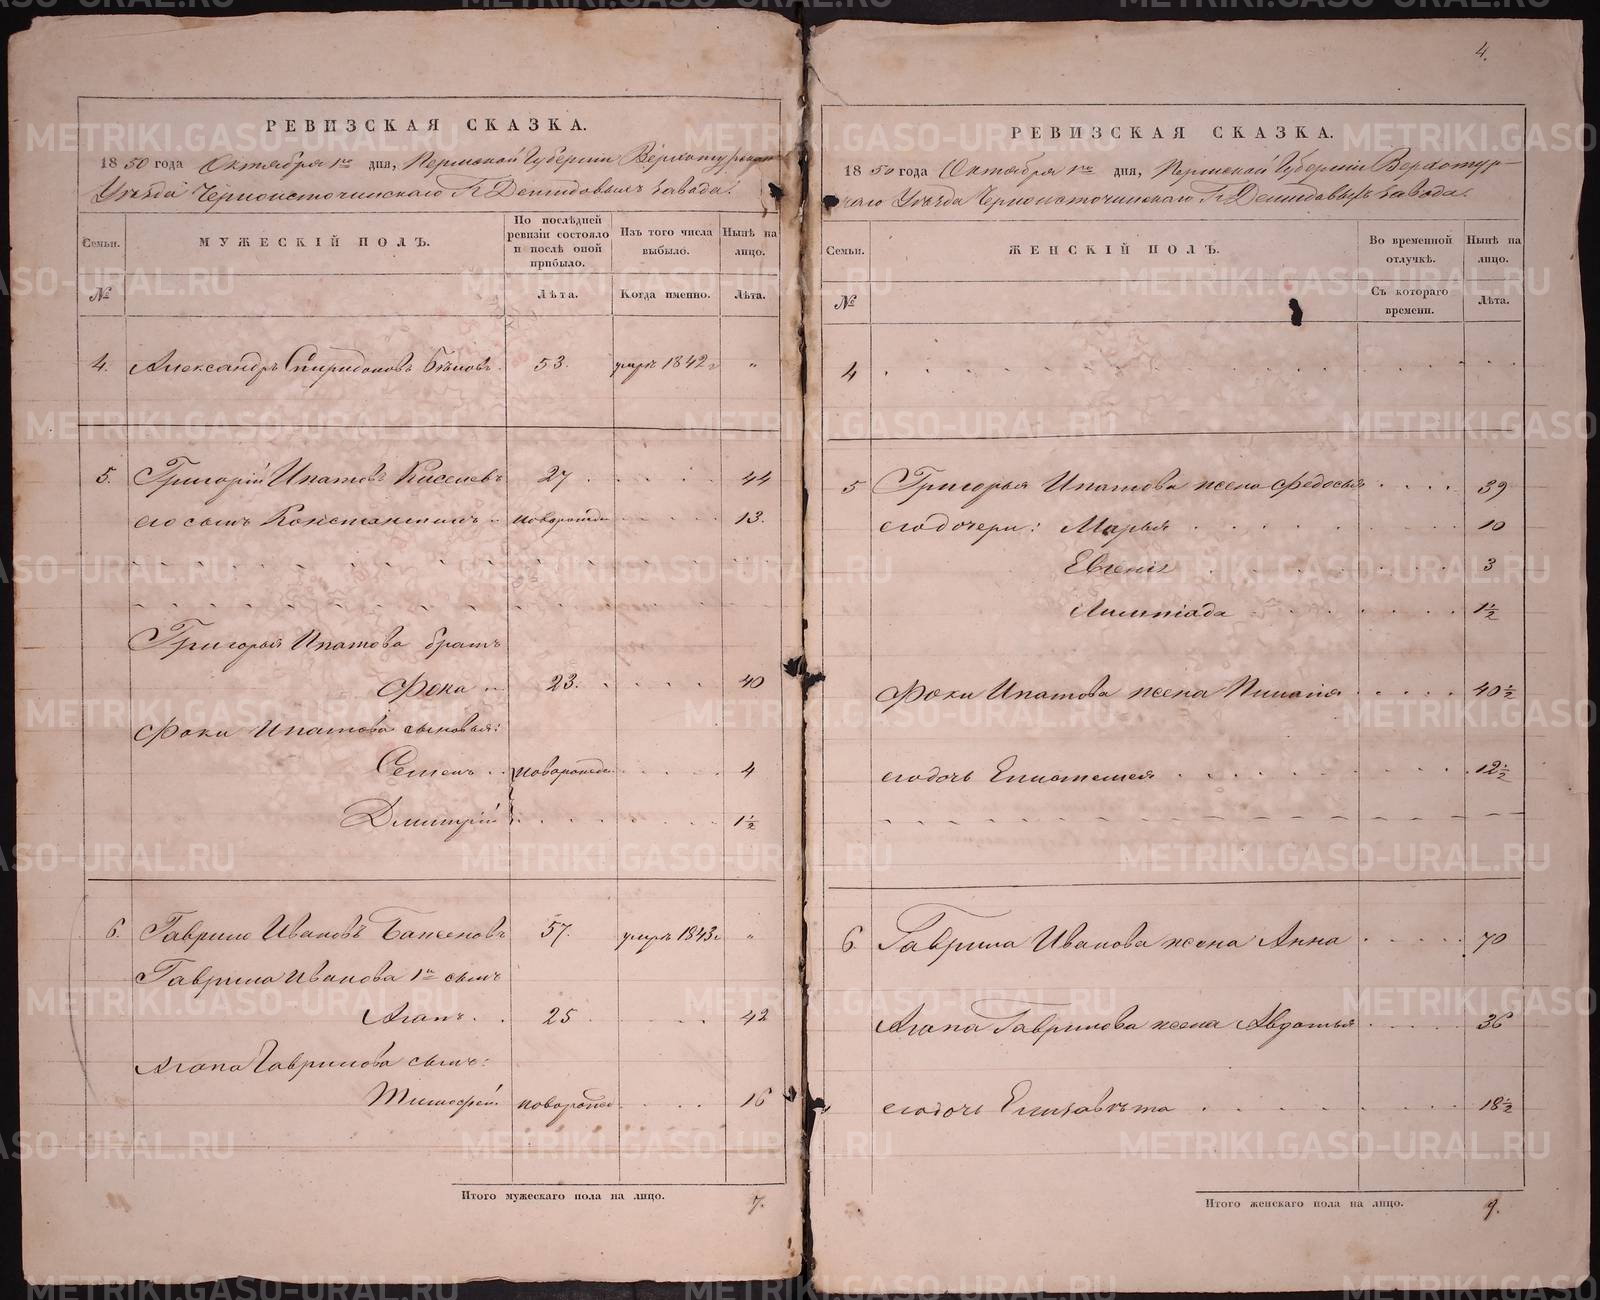 4.
РЕВИЗСКАЯ СКАЗКА.
1850 года Октября 1го дня, Пермской Губернии Верхотурскаго
Уѣзда Черноисточинскаго Гг Демидовыхъ завода.
Семьи. МУЖЕСКІЙ ПОЛЪ. По послѣдней ревизіи состояло и послѣ оной прибыло. Изъ того числа выбыло. Нынѣ на лицо.
№ Лѣта. Когда именно. Лѣта.
4. Александръ Спиридоновъ Бѣловъ. 53. умръ 1842 г "
5. Григорій Ипатовъ Киселевъ 27 44
его сынъ Константинъ новорожден 13.
Григорья Ипатова братъ
Фока 23. 40
Фоки Ипатова сыновья:
Семенъ новорожден 4
Дмитрій 1½
6. Гаврило Ивановъ Баженовъ 57. умръ 1843 г "
Гаврила Иванова 1й сынъ
Агапъ 25 42
Агапа Гаврилова сынъ:
Тимофей новорожден 16
Итого мужескаго пола на лицо. 7.
РЕВИЗСКАЯ СКАЗКА.
1850 года Октября 1го дня, Пермской Губерніи Верхотур-
скаго Уѣзда Черноисточинскаго Гг Демидовыхъ завода.
Семьи. ЖЕНСКІЙ ПОЛЪ. Во временной отлучкѣ. Нынѣ на лицо.
№ Съ котораго времени. Лѣта.
4
5 Григорья Ипатова жена Федосья 39
его дочери: Марья 10
Евгенія 3
Лимпіада 1½
Фоки Ипатова жена Пилагія 40½
его дочь Епистимея 12½
6. Гаврила Иванова жена Анна 70
Агапа Гаврилова жена Авдотья 36
его дочь Елизавѣта 18½
Итого женскаго пола на лицо. 9.
METRIKI.GASO-URAL.RU